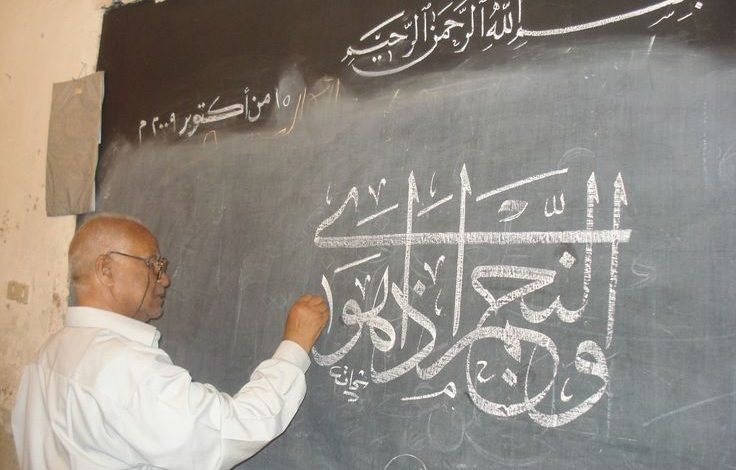 بسم الله الرحمن الرحيم
١٥ من أكتوبر ٢٠٠٩ م
والنجم إذا هوى